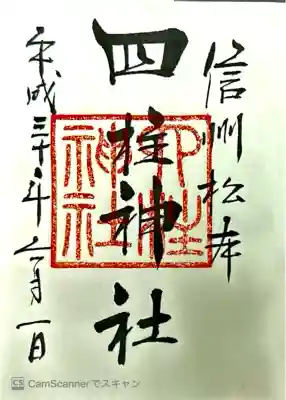 信州松本
四柱神社
平成三十年六月一日
四柱神社
CS CamScannerでスキャン